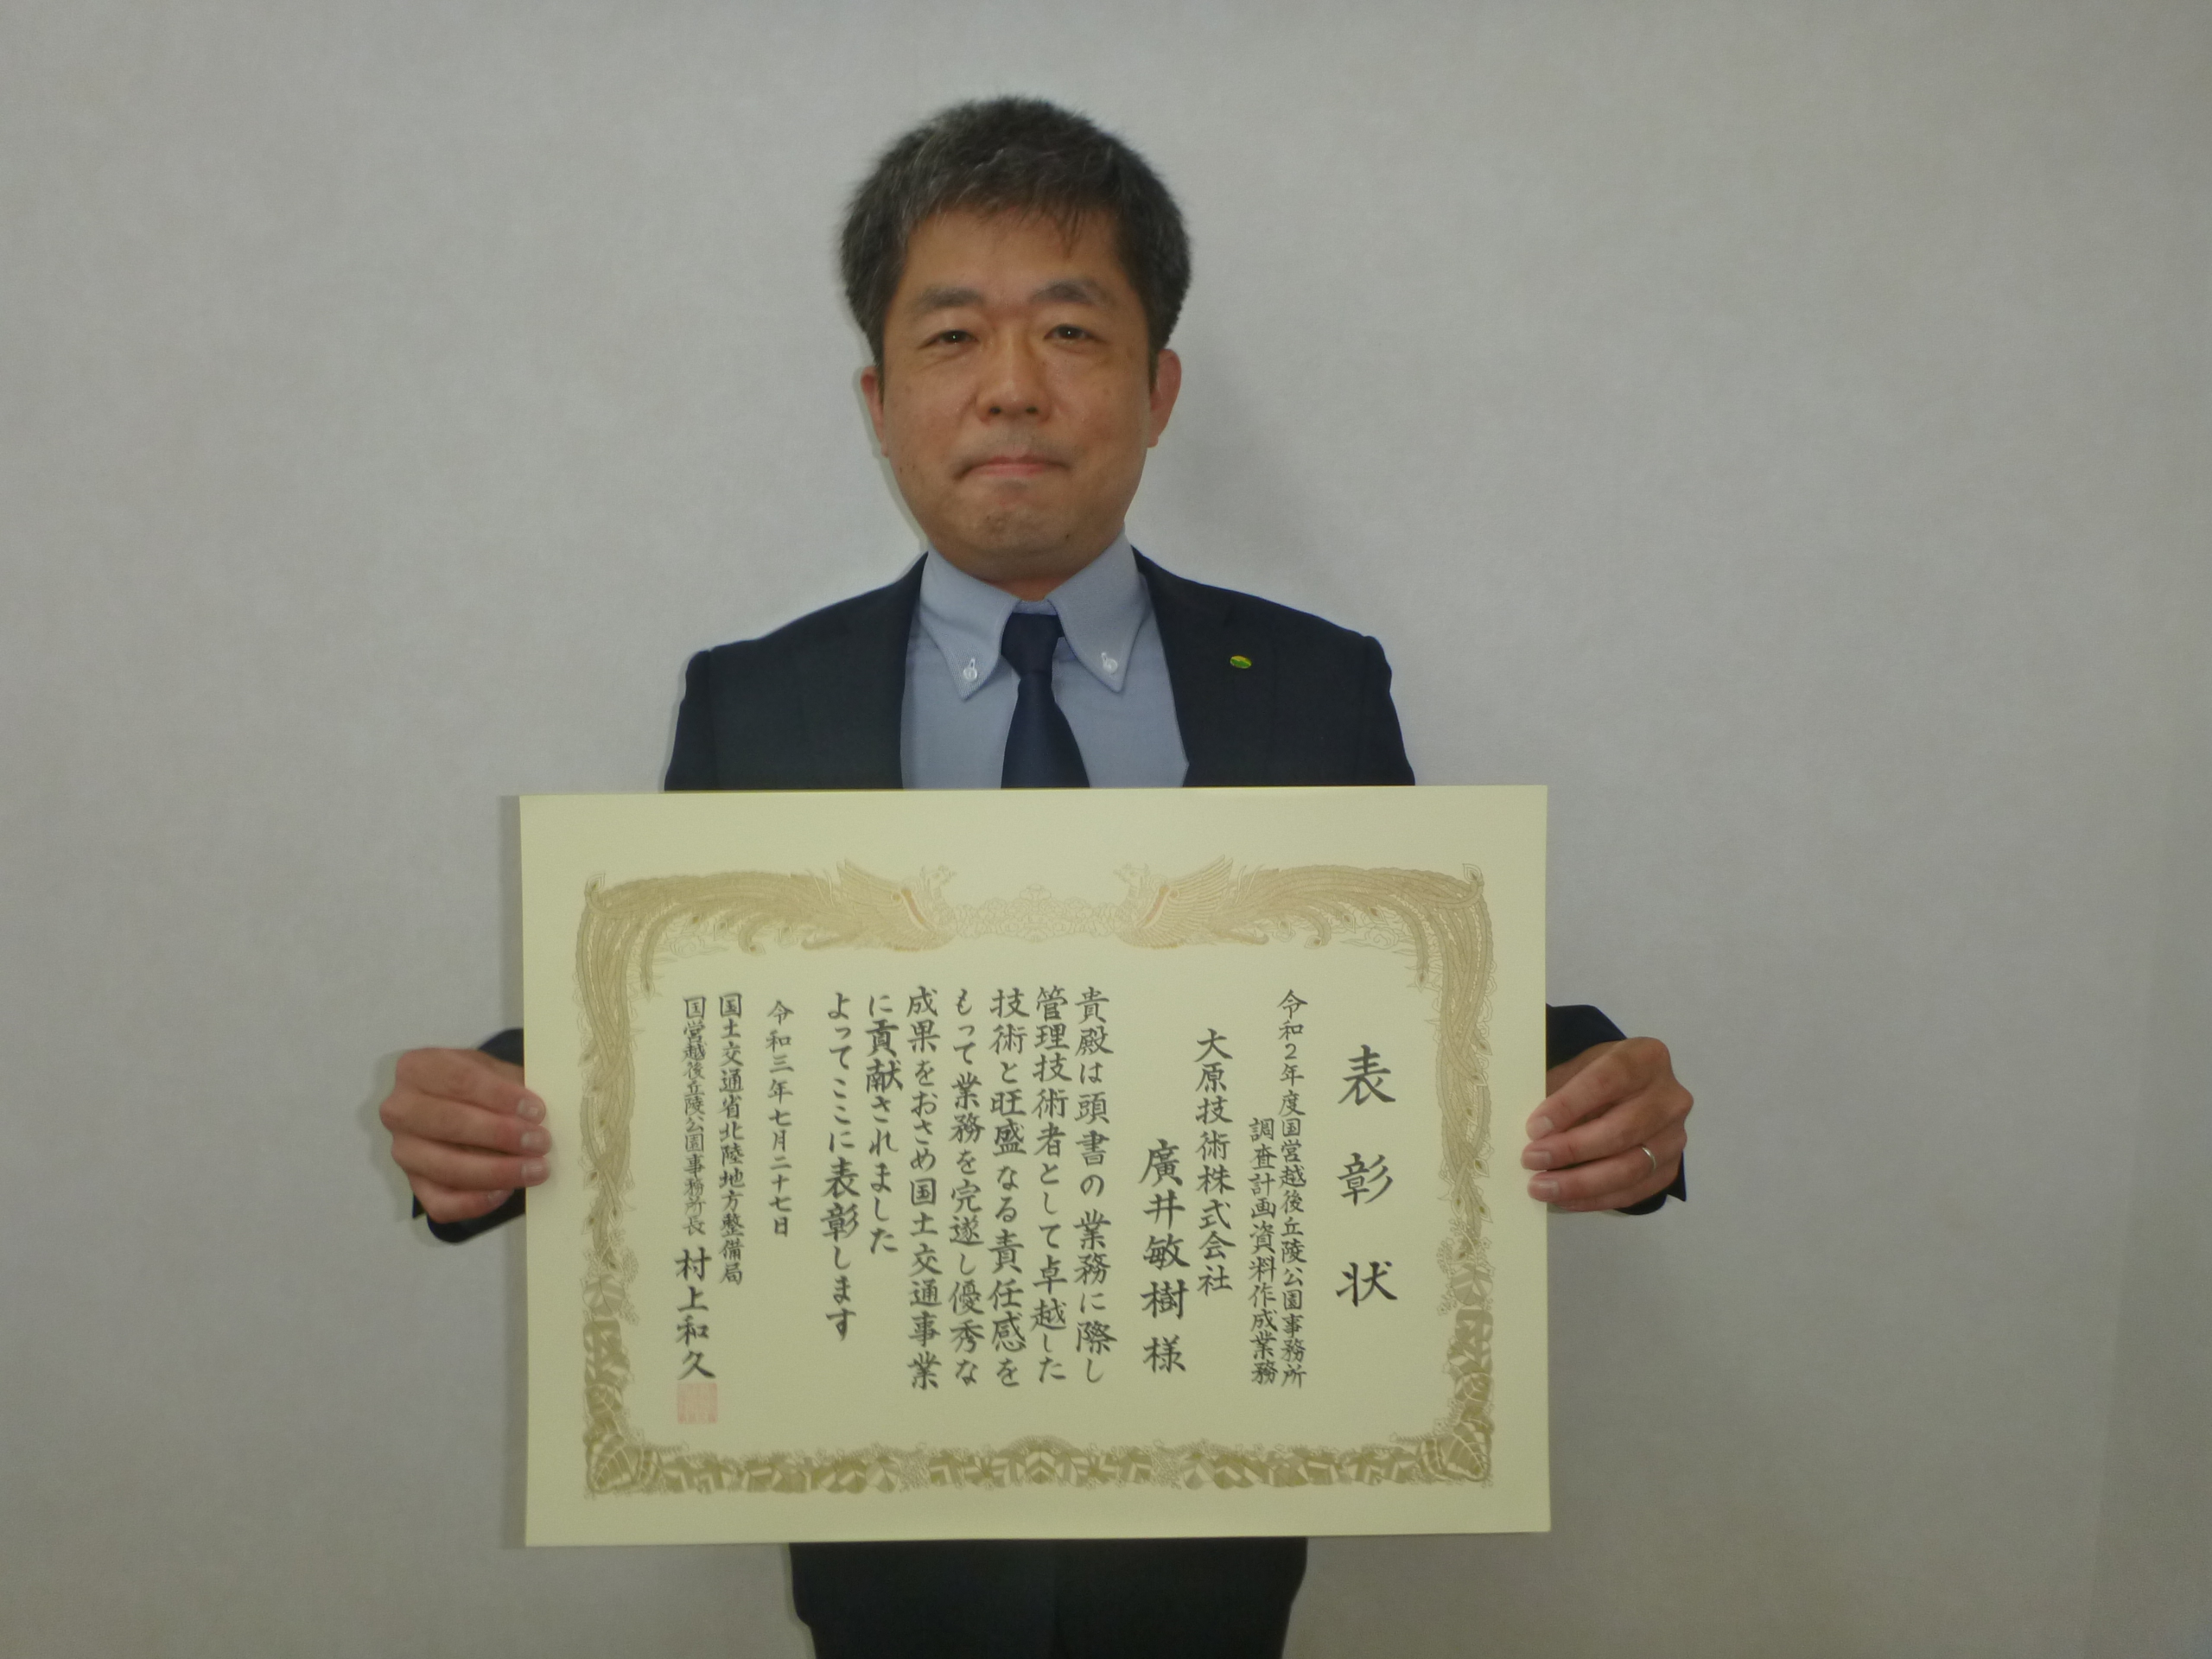 表彰状
令和2年度国営越後丘陵公園事務所
調査計画資料作成業務
大原技術株式会社
廣井敏樹様
貴殿は頭書の業務に際し
管理技術者として卓越した
技術と旺盛なる責任感を
もって業務を完遂し優秀な
成果をおさめ国土交通事業
に貢献されました
よってここに表彰します
令和三年七月二十七日
国土交通省北陸地方整備局
国営越後丘陵公園事務所長 村上和久